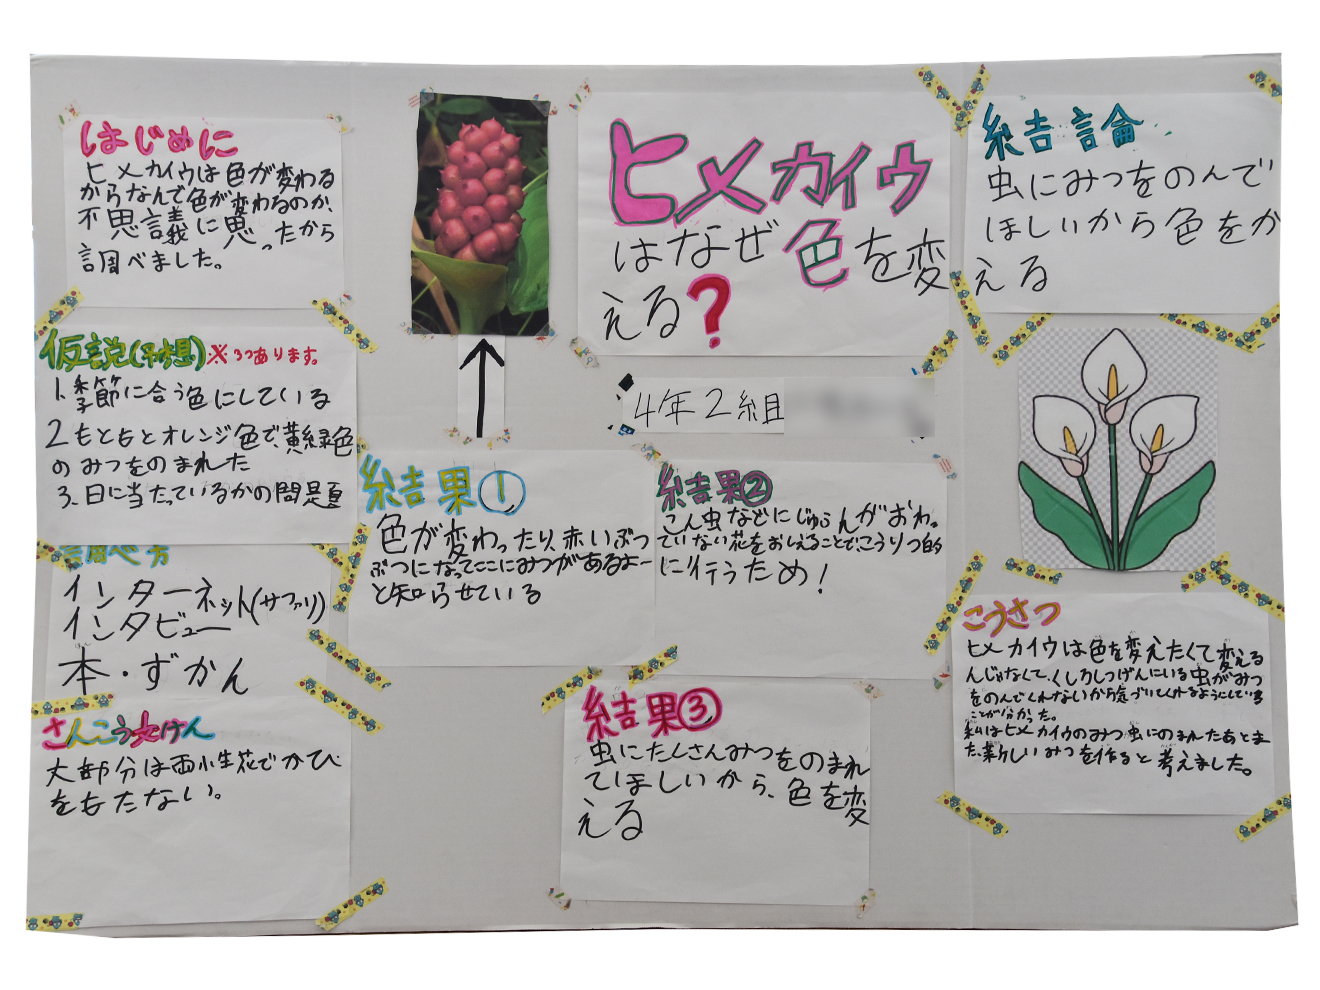 ヒメカイウ
はなぜ色を変
える?
4年2組
はじめに
ヒメカイウは色が変わる
からなんで色が変わるのか、
不思議に思ったから
調べました。
仮説(予想)※3つあります。
1.季節に合う色にしている
2もともとオレンジ色で、黄緑色
のみつをのまれた
3.日に当たっているかの問題
調べ方
インターネット(サファリ)
インタビュー
本・ずかん
さんこう文けん
大部分は両小生花でかひ
をもたない。
結果①
色が変わったり、赤いぶつ
ぶつになってここにみつがあるよー
と知らせている
結果②
こん虫などにじゅふんがおわっ
ていない花をおしえることでこうりつ的
に行うため!
結果③
虫にたくさんみつをのまれ
てほしいから、色を変
える
結吉言論
虫にみつをのんで
ほしいから色をか
える
こうさつ
ヒメカイウは色を変えたくて変える
んじゃなくて、くしろしつげんにいる虫がみつ
をのんでくれないから気づいてくれるようにして
ことが分かった。
私はヒメカイウのみつ虫にのまれたあとま
た、新しいみつを作ると考えました。